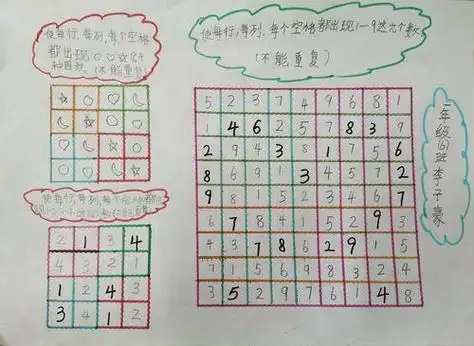 使每行,每列,每个空格
都出现
种图形。(不能重复)
☆ ○ ♡ ☾
☾ ☆ ○ ♡
♡ ☾ ☆ ○
○ ♡ ☾ ☆
使每行,每列,每个
2 1 3 4
4 3 2 1
1 2 4 3
3 4 1 2
使每行,每列,每个空格都出现1—9这九个数
(不能重复)
5 2 3 7 4 9 6 8 1
1 4 6 2 5 7 8 3 9
2 9 4 3 8 1 7 5 6
8 6 9 1 3 4 5 7 2
9 8 1 5 2 3 4 6 7
6 7 8 4 1 5 2 9 3
4 3 7 8 6 2 9 1 5
7 1 5 6 9 8 3 2 4
3 5 2 9 7 6 1 4 8
二年级(6)班李子豪